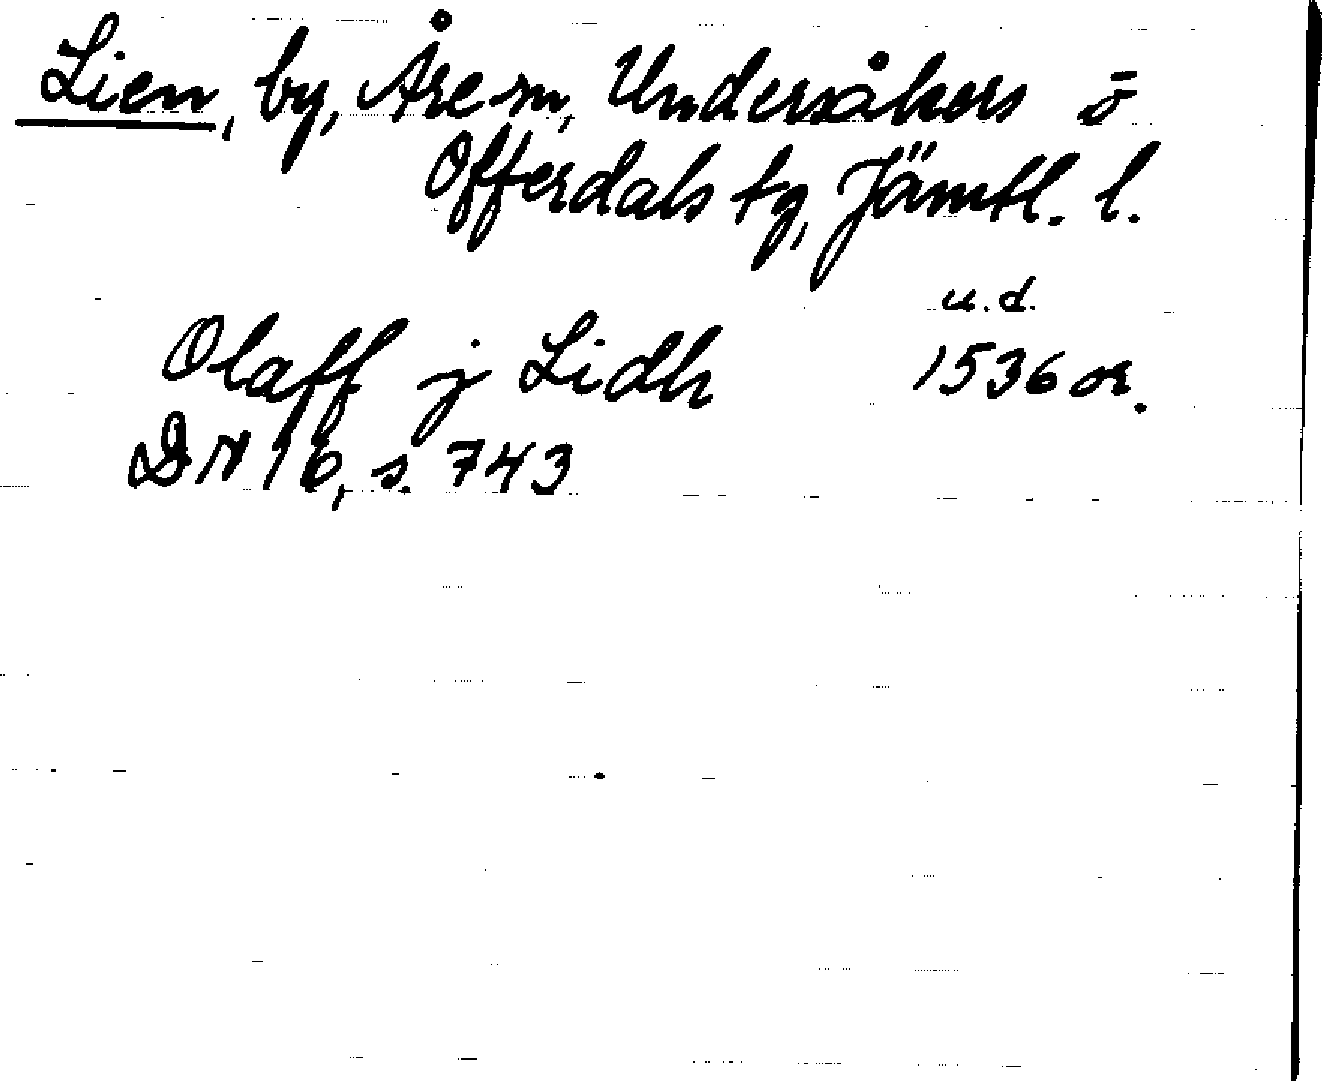 Lien, by, Åre sn, Undersåkers o
Offerdals tg, Jämtl. l.
u.d.
Olaff j Lidh 1536 or.
DN 16, s. 743